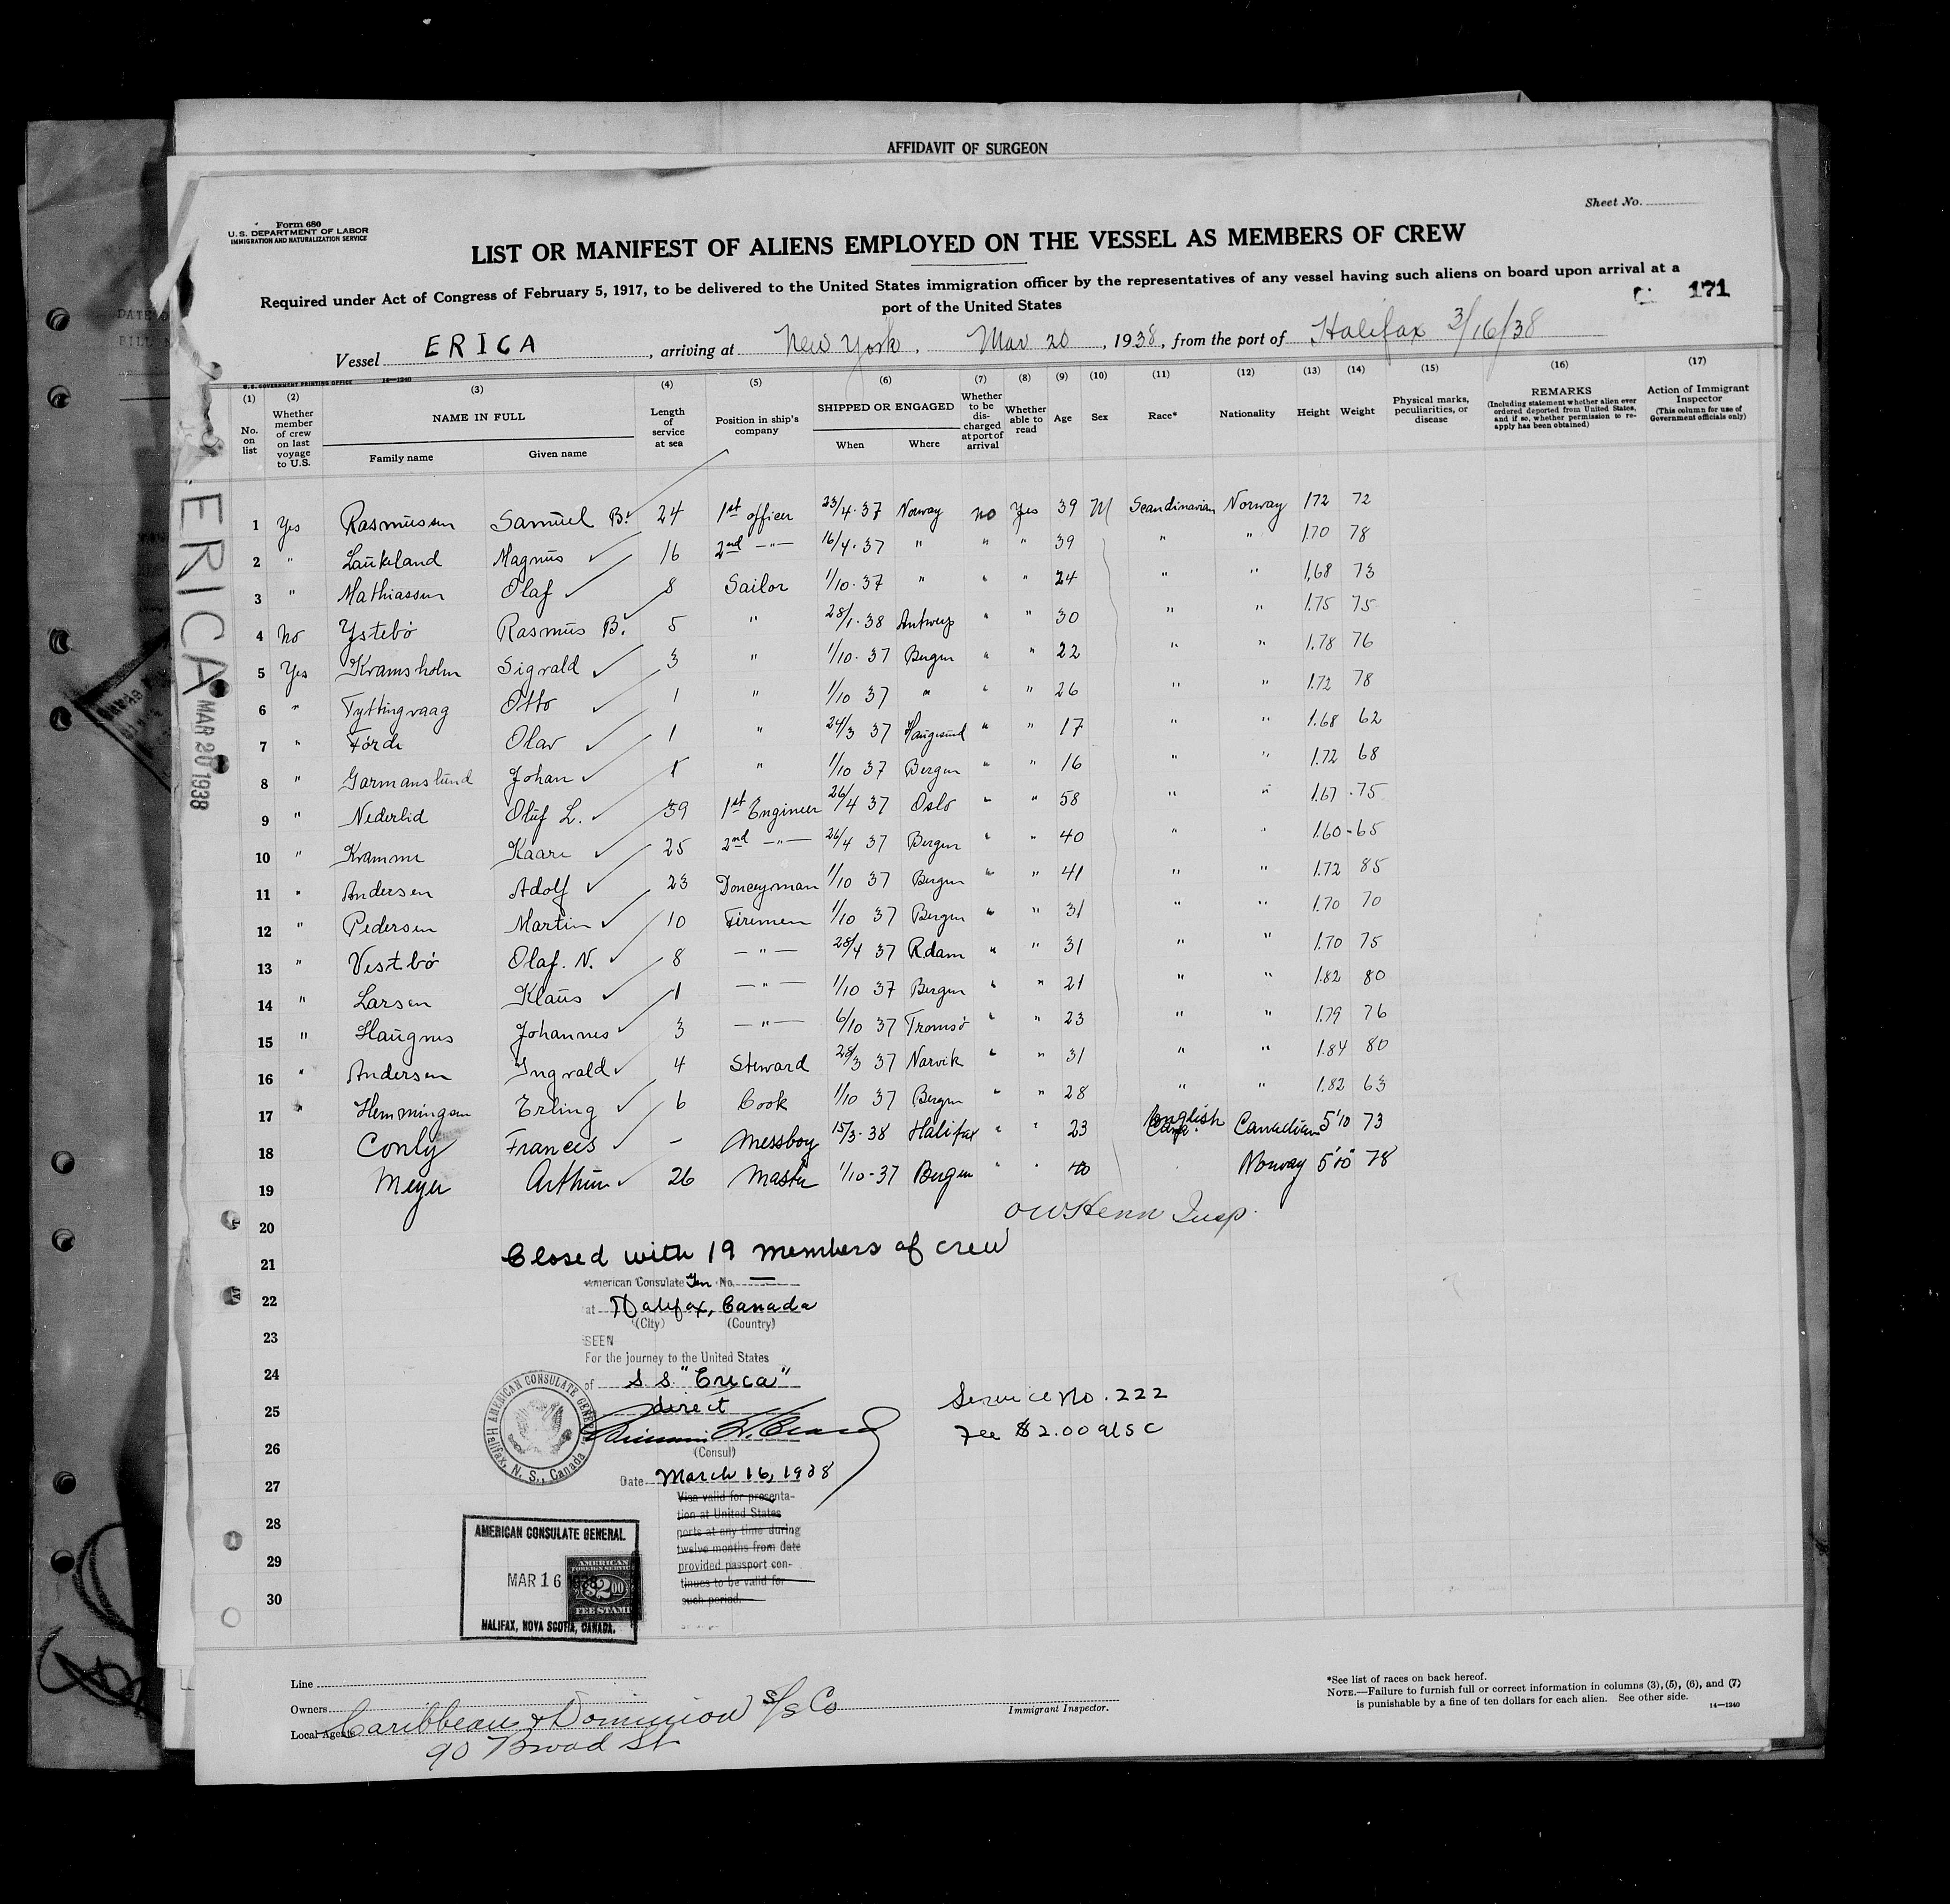 AFFIDAVIT OF SURGEON
Sheet No.
Form 680
U.S. DEPARTMENT OF LABOR
IMMIGRATION AND NATURALIZATION SERVICE
LIST OR MANIFEST OF ALIENS EMPLOYED ON THE VESSEL AS MEMBERS OF CREW
Required under Act of Congress of February 5, 1917, to be delivered to the United States immigration officer by the representatives of any vessel having such aliens on board upon arrival at a
port of the United States
171
Vessel ERICA, arriving at New York, Mar 20, 1938, from the port of Halifax 3/16/38
U.S. GOVERNMENT PRINTING OFFICE 14—1240
(1) No. on list
(2) Whether member of crew on last voyage to U.S.
(3) NAME IN FULL Family name Given name
(4) Length of service at sea
(5) Position in ship's company
(6) SHIPPED OR ENGAGED When Where
(7) Whether to be discharged at port of arrival
(8) Whether able to read
(9) Age
(10) Sex
(11) Race*
(12) Nationality
(13) Height
(14) Weight
(15) Physical marks, peculiarities, or disease
(16) REMARKS (Including statement whether alien ever ordered deported from United States, and if so, whether permission to reapply has been obtained)
(17) Action of Immigrant Inspector (This column for use of Government officials only)
1 Yes Rasmussen Samuel B. 24 1st officer 23/4·37 Norway no Yes 39 M Scandinavian Norway 172 72
2 " Laukeland Magnus 16 2nd —"— 16/4·37 " " " 39 " " 1.70 78
3 " Mathiassen Olaf 8 Sailor 1/10·37 " " " 24 " " 1,68 73
4 No Ystebö Rasmus B. 5 " 28/1·38 Antwerp " " 30 " " 1.75 75
5 Yes Kramsholm Sigvald 3 " 1/10·37 Bergen " " 22 " " 1.78 76
6 " Tyttingvaag Otto 1 " 1/10 37 " " " 26 " " 1.72 78
7 " Förde Olav 1 " 24/3 37 Haugesund " " 17 " " 1.68 62
8 " Garmanslund Johan 1 " 1/10 37 Bergen " " 16 " " 1.72 68
9 " Nederlid Oluf L. 39 1st Engineer 26/4 37 Oslo " " 58 " " 1.67 75
10 " Kramme Kaare 25 2nd —"— 26/4 37 Bergen " " 40 " " 1.60 65
11 " Andersen Adolf 23 Donceyman 1/10 37 Bergen " " 41 " " 1.72 85
12 " Pedersen Martin 10 Firemen 1/10 37 Bergen " " 31 " " 1.70 70
13 " Vestbö Olaf. N. 8 —"— 28/4 37 R.dam " " 31 " " 1.70 75
14 " Larsen Klaus 1 —"— 1/10 37 Bergen " " 21 " " 1.82 80
15 " Haugnes Johannes 3 —"— 6/10 37 Tromsö " " 23 " " 1.79 76
16 " Andersen Ingvald 4 Steward 28/3 37 Narvik " " 31 " " 1.84 80
17 " Hemmingsen Erling 6 Cook 1/10 37 Bergen " " 28 " " 1.82 63
18 Conly Frances — Messboy 15/3·38 Halifax " " 23 English Canadian 5'10 73
19 Meyer Arthur 26 Master 1/10-37 Bergen " " 40 Norway 5'10 78
20
21
22
23
24
25
26
27
28
29
30
OWHenn Insp.
Closed with 19 members of crew
American Consulate Gen No. —
at Halifax, Canada
(City) (Country)
SEEN
For the journey to the United States
of S.S. "Erica"
direct
(Consul)
Date March 16, 1938
Visa valid for presenta-
tion at United States
ports at any time during
twelve months from date
provided passport con-
tinues to be valid for
such period.
Service No. 222
Fee $2.00
AMERICAN CONSULATE GENERAL
Halifax, N. S., Canada
AMERICAN CONSULATE GENERAL.
MAR 16 1938
AMERICAN
FOREIGN SERVICE
$2.00
FEE STAMP
HALIFAX, NOVA SCOTIA, CANADA.
ERICA
MAR 20 1938
Line
Owners
Local Agents Caribbean & Dominion S/S Co
90 Broad St
Immigrant Inspector.
*See list of races on back hereof.
NOTE.—Failure to furnish full or correct information in columns (3), (5), (6), and (7)
is punishable by a fine of ten dollars for each alien. See other side.
14—1240